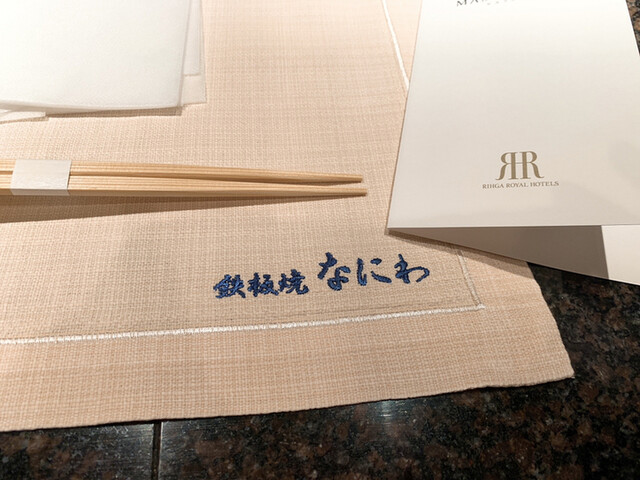 RIHGA ROYAL HOTELS
鉄板焼 なにわ